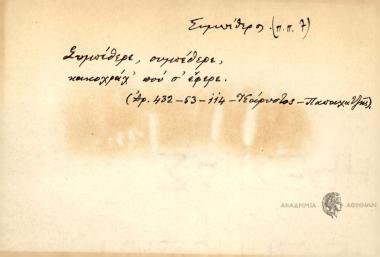 Συμπέθερος (π.π. 7)
Συμπέθερε, συμπέθερε,
που σ' έφερε.
(Αρ. 432-53-114-Κάρυστος-Παπαχατζῆς)
ΑΚΑΔΗΜΙΑ ΑΘΗΝΩΝ